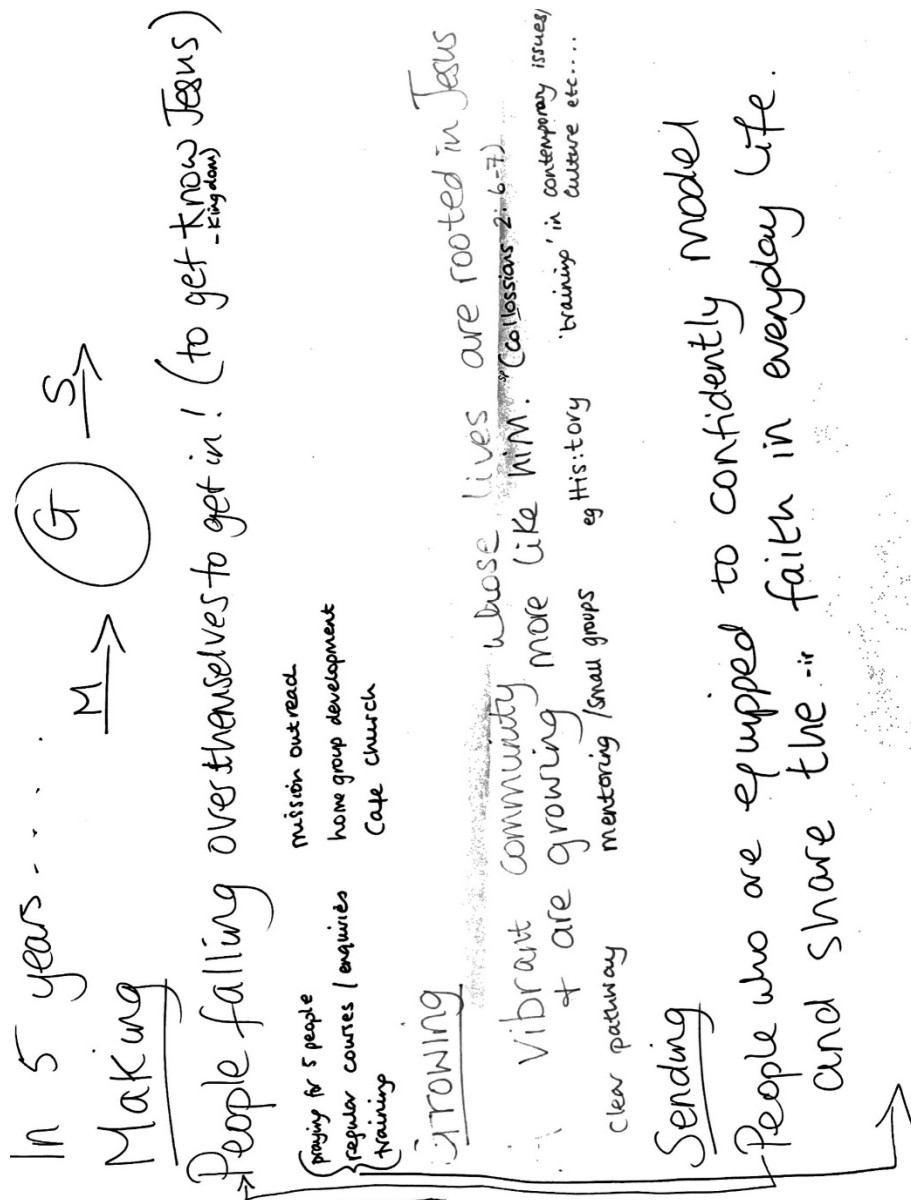 In 5 years.....
M → G S →
Making
People falling over themselves to get in! (to get know Jesus)
- Kingdom)
praying for 5 people mission outreach
regular courses / enquiries home group development
training Cafe church
Growing
Vibrant community whose lives are rooted in Jesus
+ are growing more like him. *(Collossians 2: 6-7)
clear pathway mentoring / small groups eg His:tory 'training' in contemporary issues/
culture etc....
Sending
People who are equipped to confidently model
and share the-ir faith in everyday life.